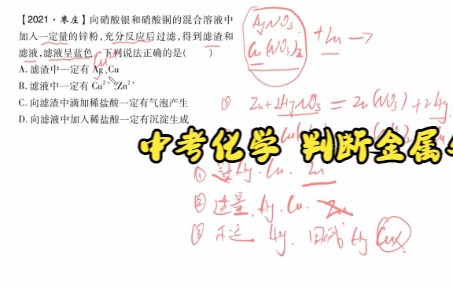 【2021·枣庄】向硝酸银和硝酸铜的混合溶液中
加入一定量的锌粉,充分反应后过滤,得到滤渣和
滤液,滤液呈蓝色。下列说法正确的是( )
A. 滤渣中一定有 Ag、Cu
B. 滤液中一定有 Cu²⁺、Zn²⁺
C. 向滤渣中滴加稀盐酸一定有气泡产生
D. 向滤液中加入稀盐酸一定有沉淀生成
AgNO₃
Cu(NO₃)₂ +Zn →
① Zn+2AgNO₃ = Zn(NO₃)₂+2Ag
中考化学 判断金属
Ag. Cu. Zn
② 适量. Ag. Cu. Zn
③ Ag.